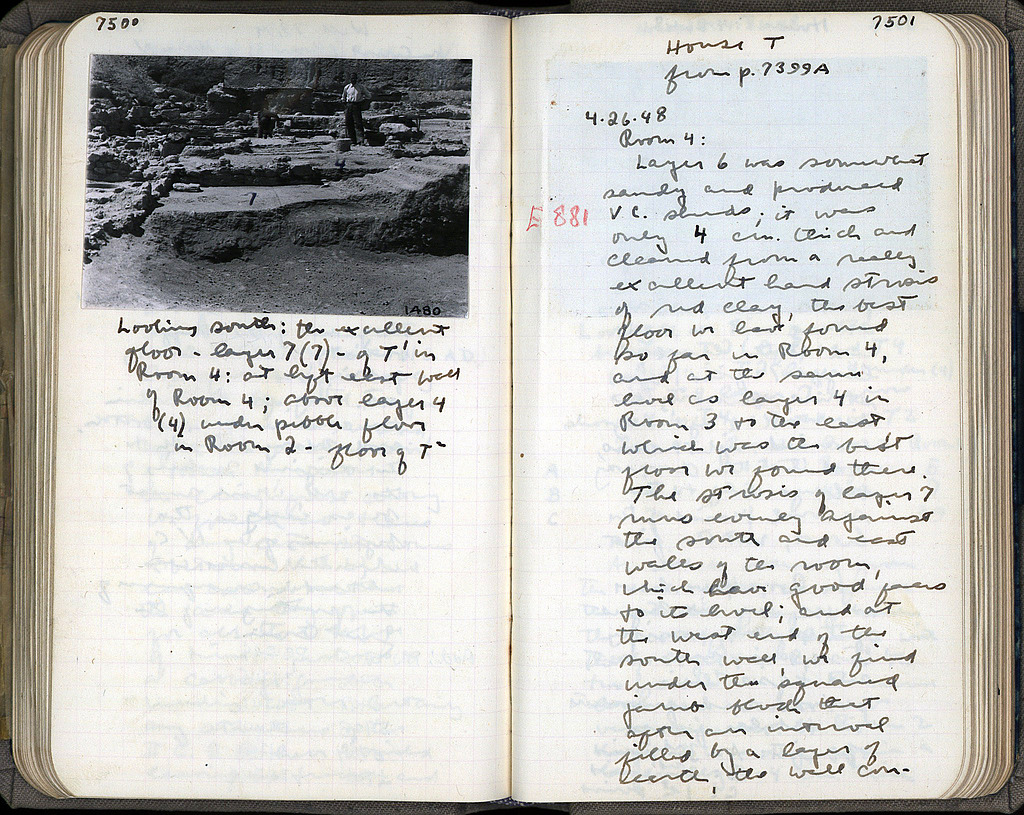 7500
7
4
1480
Looking south: the excellent
floor - layer 7 (7) - of T' in
Room 4: at left east wall
of Room 4; above layer 4
(4) under pebble floor
in Room 2 - floor of T
7501
House T
from p. 7399A
4.26.48
Room 4:
Layer 6 was somewhat
sandy and produced
E 881
V C. sherds; it was
only 4 cm. thick and
cleaned from a really
excellent hard strosis
of red clay, the best
floor we have found
so far in Room 4,
and at the same
level as layer 4 in
Room 3 to the east
which was the first
floor we found there.
The strosis of layer 7
runs evenly against
the south and east
walls of the room,
which have good faces
to its level; and at
the west end of the
south wall we find
under the squared
jamb block that
after an interval
filled by a layer of
earth, the wall con-